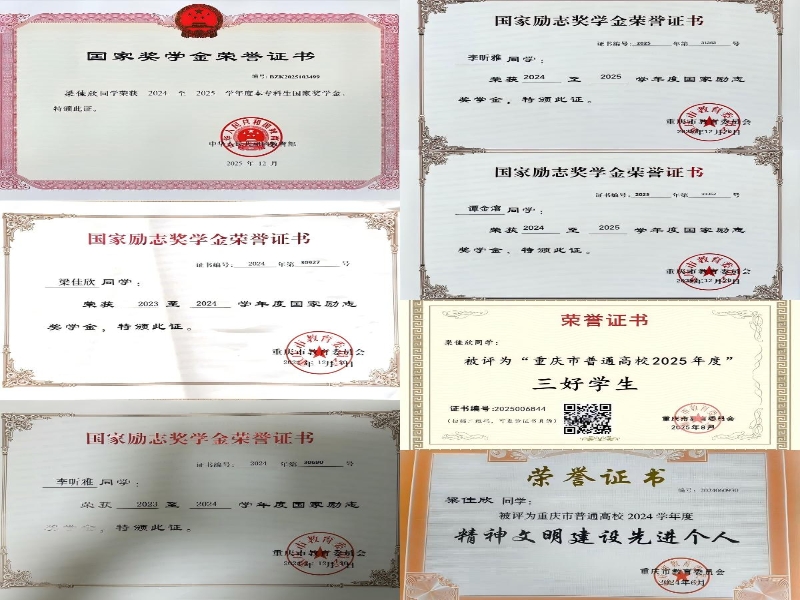 国家奖学金荣誉证书
编号: BZK2025103499
梁佳欣同学荣获 2024 至 2025 学年度本专科生国家奖学金,
特颁此证。
2025 年 12 月
国家励志奖学金荣誉证书
证书编号: 2024 年第 30627 号
梁佳欣 同学:
荣获 2023 至 2024 学年度国家励志
奖学金, 特颁此证。
重庆市教育委员会
国家励志奖学金荣誉证书
证书编号: 2024 年第 号
李昕雅 同学:
荣获 2023 至 2024 学年度国家励志
奖学金, 特颁此证。
重庆市教育委员会
国家励志奖学金荣誉证书
证书编号: 2025 年第 号
李昕雅 同学:
荣获 2024 至 2025 学年度国家励志
奖学金, 特颁此证。
重庆市教育委员会
国家励志奖学金荣誉证书
证书编号: 2025 年第 号
同学:
荣获 2024 至 2025 学年度国家励志
奖学金, 特颁此证。
重庆市教育委员会
荣誉证书
梁佳欣同学:
被评为“重庆市普通高校2025年度”
三好学生
证书编号:2025006844
重庆市教育委员会
2025年8月
荣誉证书
梁佳欣 同学:
被评为重庆市普通高校 2024 学年度
精神文明建设先进个人
重庆市教育委员会
2024年6月